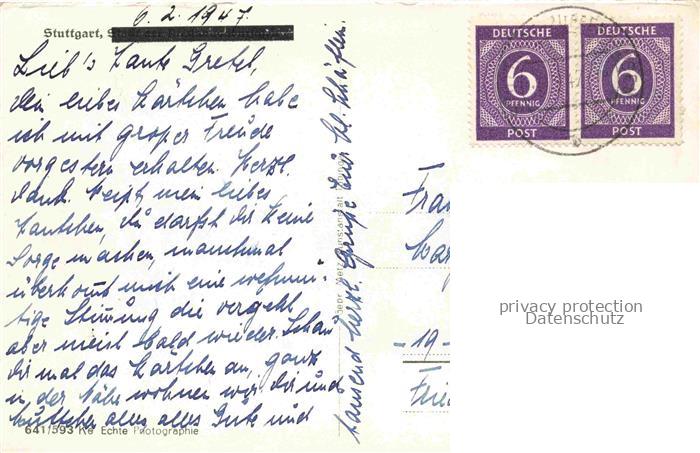 6. 2. 1947.
Stuttgart,
Lieb's Tante Gretel,
Dein liebes Kärtchen habe
ich mit großer Freude
vorgestern erhalten. Herzl.
Dank. Weißt, mein liebes
Tantchen, Du darfst Dir keine
Sorge machen, manchmal
überkommt mich eine wehmü-
tige Stimmung die vergeht
aber meist bald wieder. Schau
Dir mal das Kärtchen an, ganz
in der Nähe wohnen wir. Dir und
alles alles Gute und
tausend herzl. Grüße Eur kl. Schäflein.
641/593 Ke Echte Photographie
Gebr. Metz
DEUTSCHE
6
PFENNIG
POST
DEUTSCHE
6
PFENNIG
POST
Frau
- 19 -
privacy protection
Datenschutz